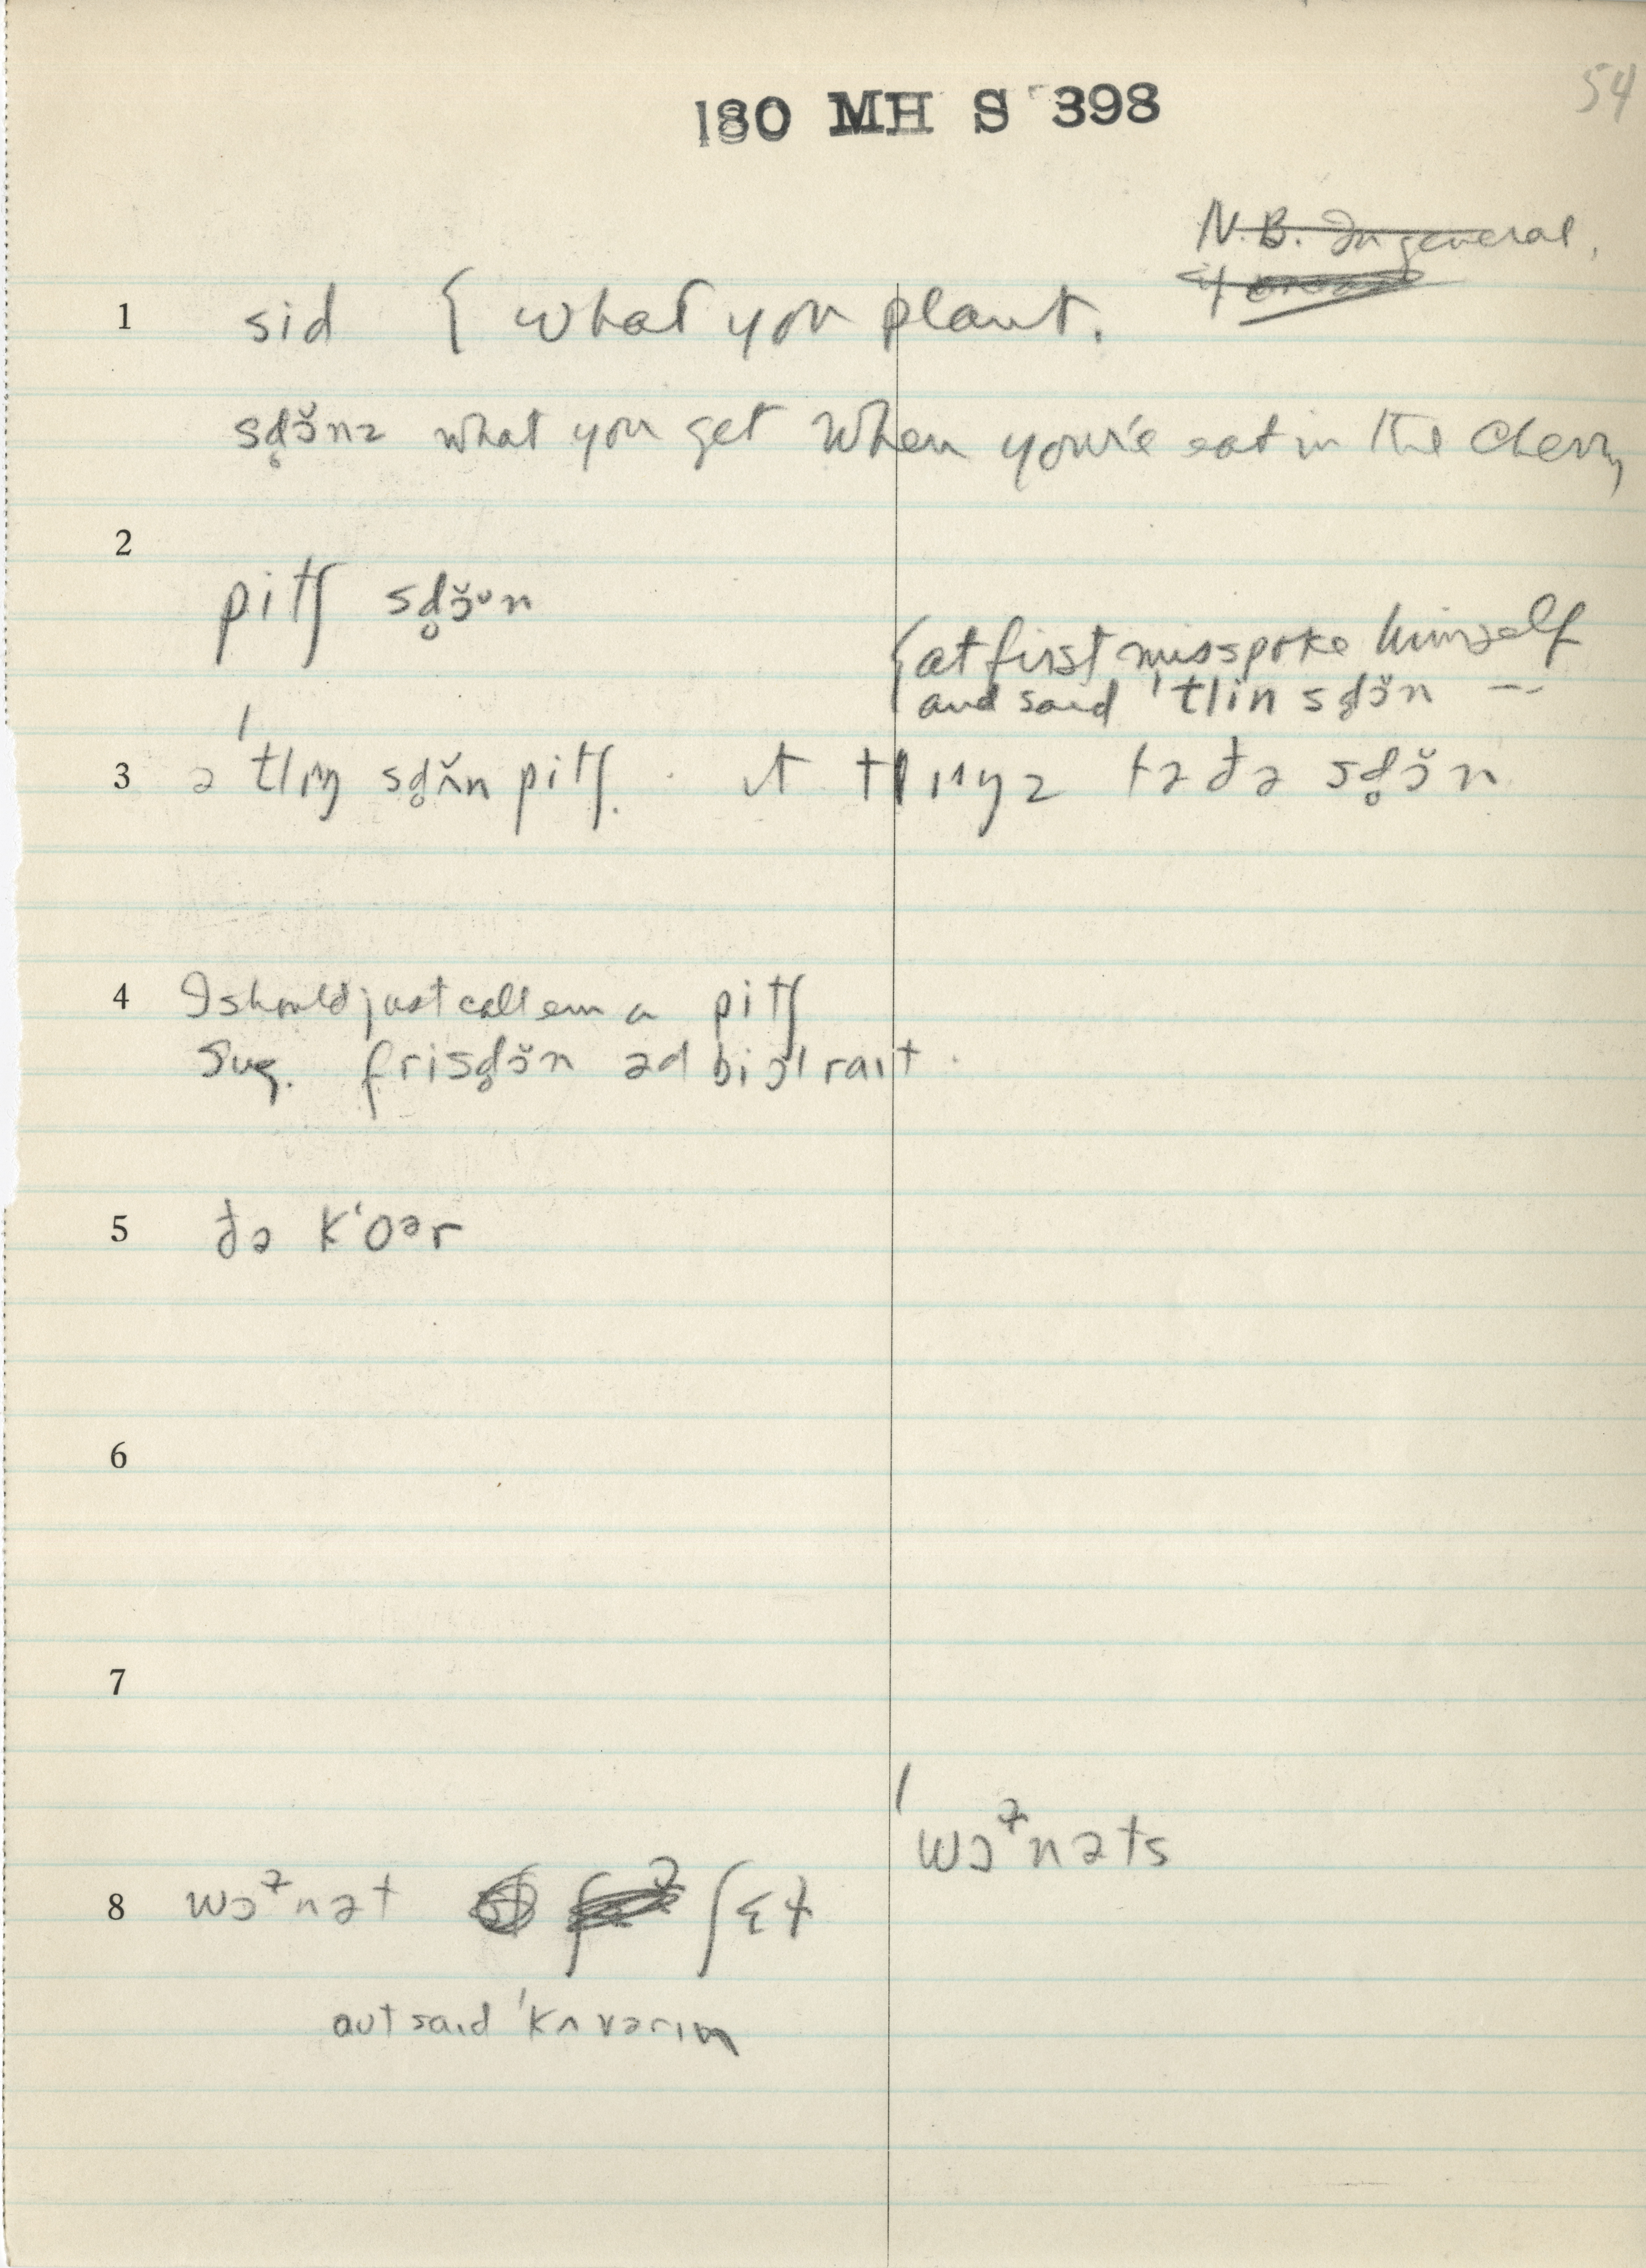 54
180 MH S 398
N.B. In general,
if
1 sid { what you plant.
sd̥ɔ̆nz what you get when you're eat in the cherry
2
pitʃ sd̥ɔ̆ᵘn
{at first misspoke himself
and said 'tlin sd̥ɔ̆n --
3 ə 'tlɪŋ sd̥ʌ̆n pitʃ. ɪt tlɪŋz tə đə sd̥ɔ̆n
4 I should just call em a pitʃ
Sug. frisd̥ɔ̆n əd bi ɔl raɪt.
5 đə k'oᵊr
6
7
'wɔᵊɫnəts
8 wɔᵊɫnət ʃɛɫ
aut said 'kʌvərɪŋ